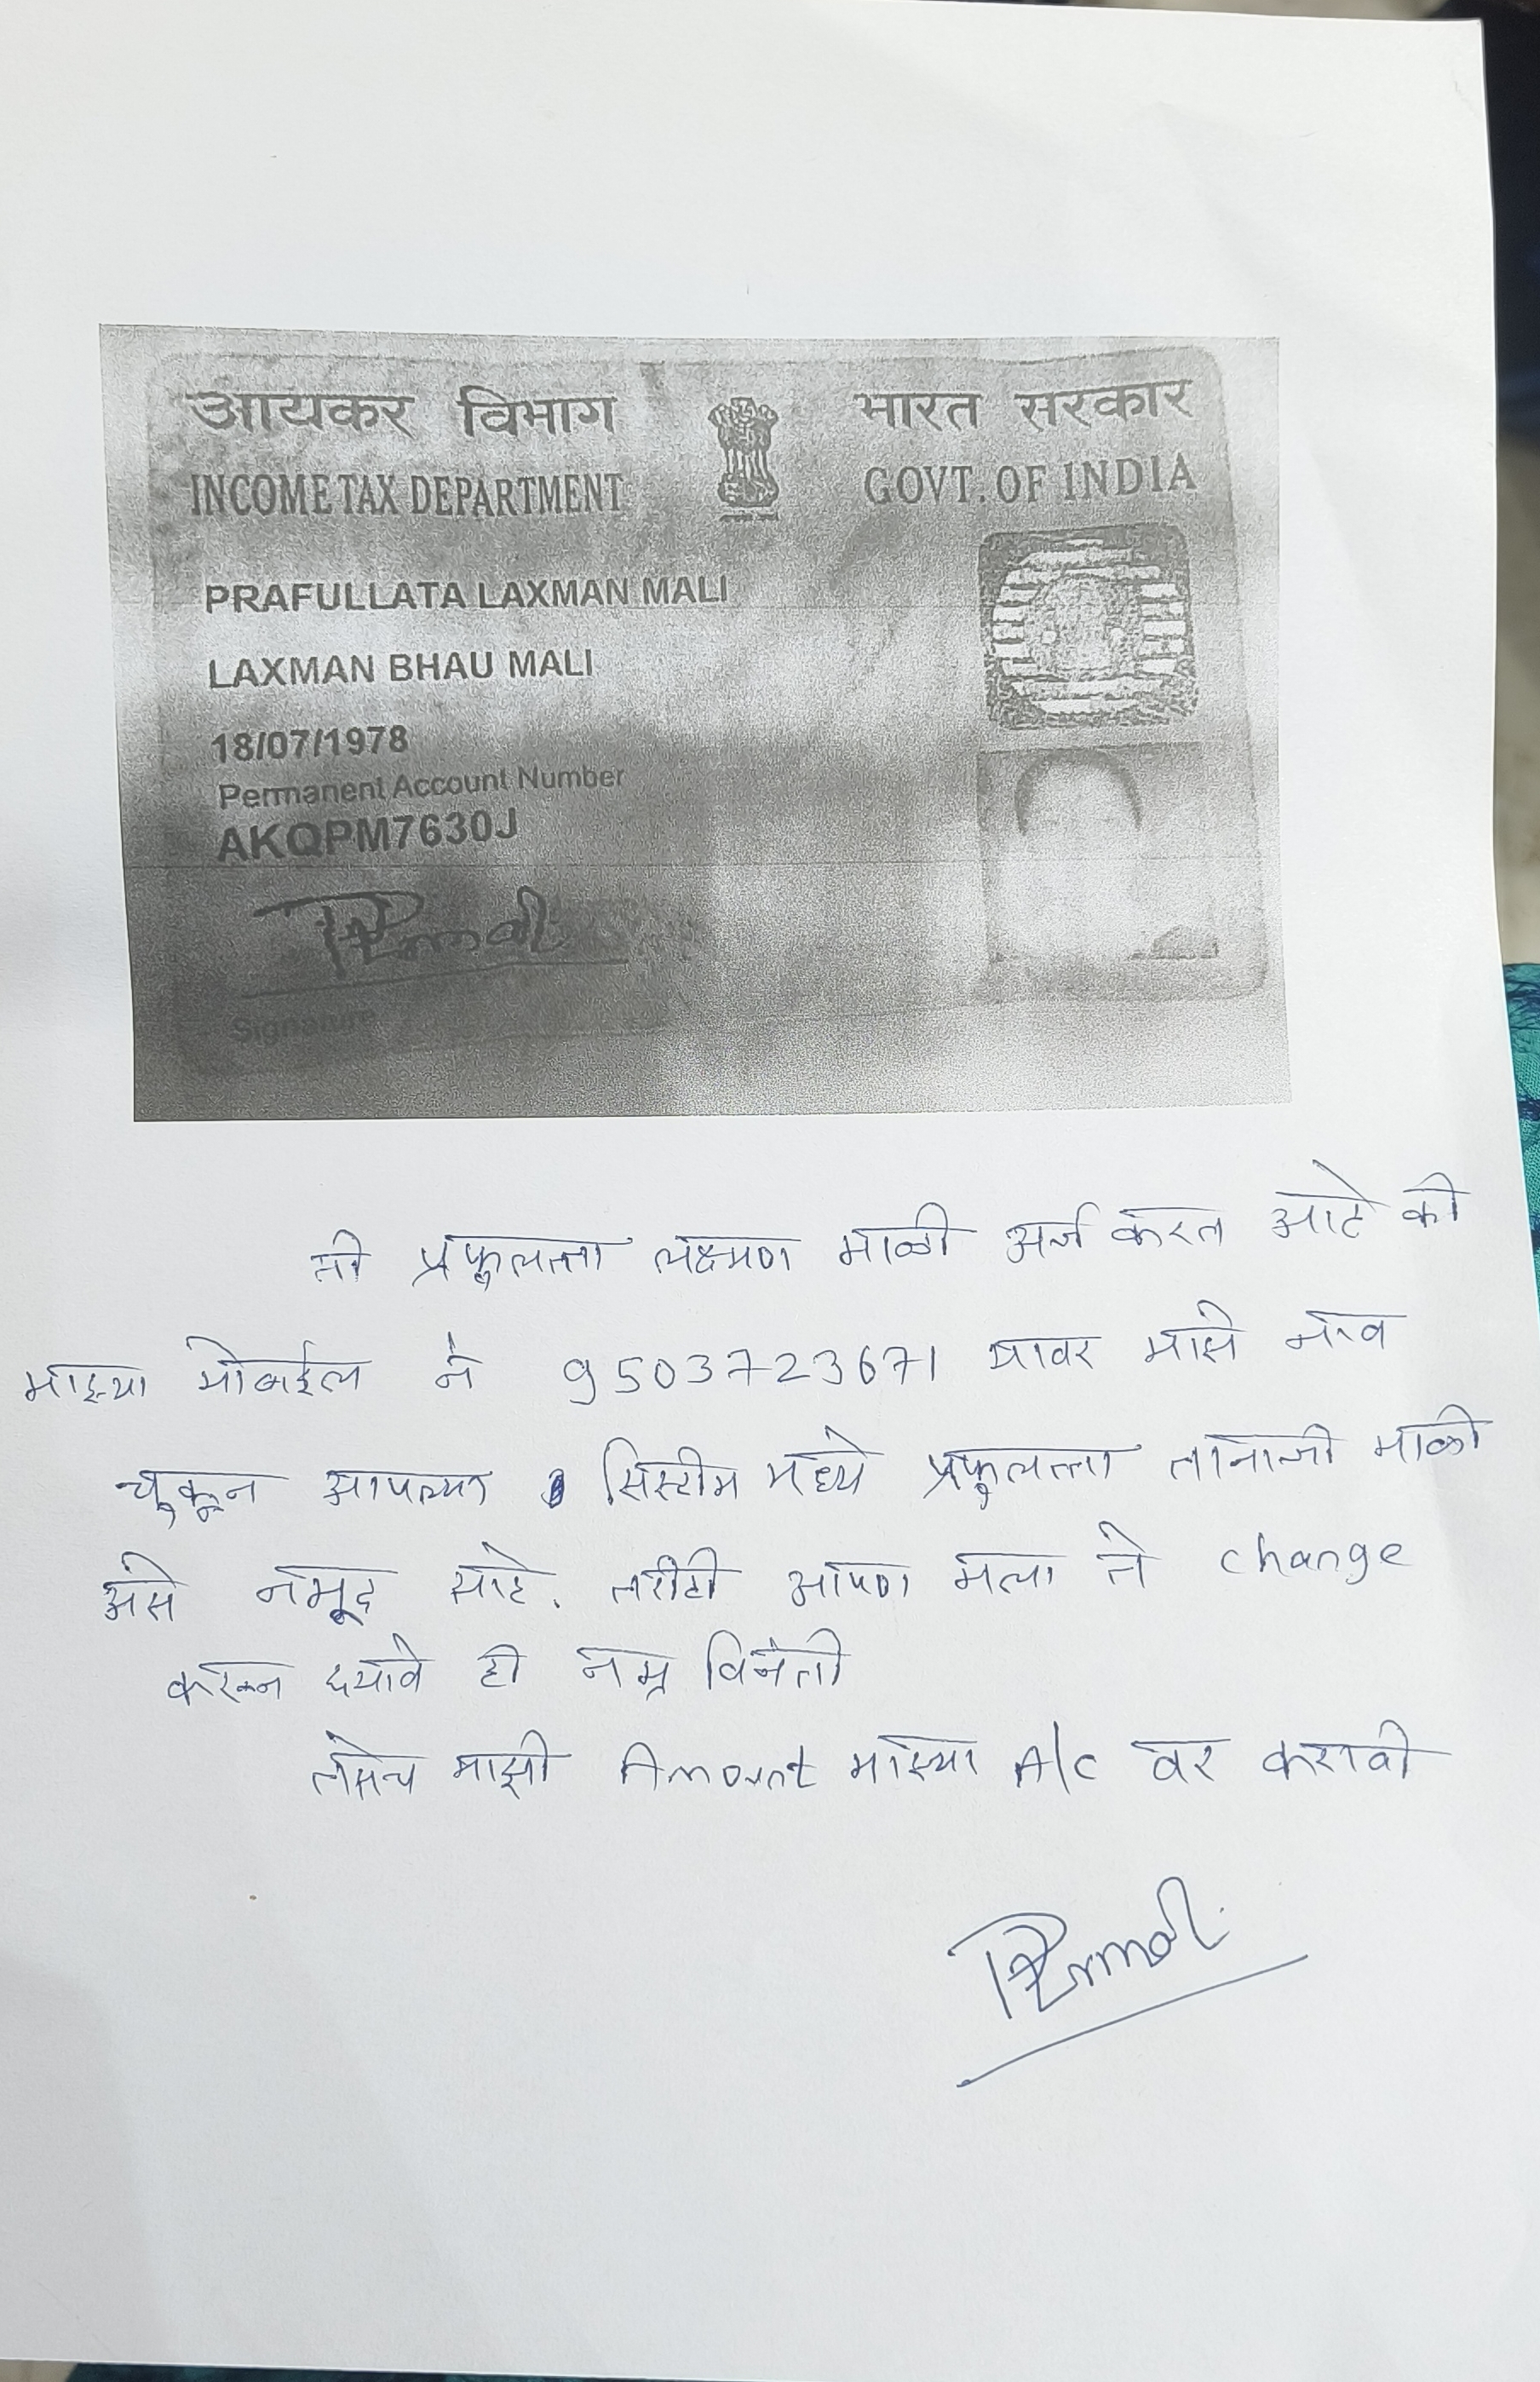 आयकर विभाग भारत सरकार
INCOME TAX DEPARTMENT GOVT. OF INDIA
PRAFULLATA LAXMAN MALI
LAXMAN BHAU MALI
18/07/1978
Permanent Account Number
AKQPM7630J
Signature
मी प्रफुलत्ता लक्ष्मण माळी अर्ज करत आहे की
माझ्या मोबाईल नं 9503723671 यावर माझे नाव
चुकून आपल्या सिस्टीम मध्ये प्रफुलत्ता तानाजी माळी
असे नमूद आहे. तरीही आपण मला ते change
करून द्यावे ही नम्र विनंती
तसेच माझी Amount माझ्या A/c वर करावी